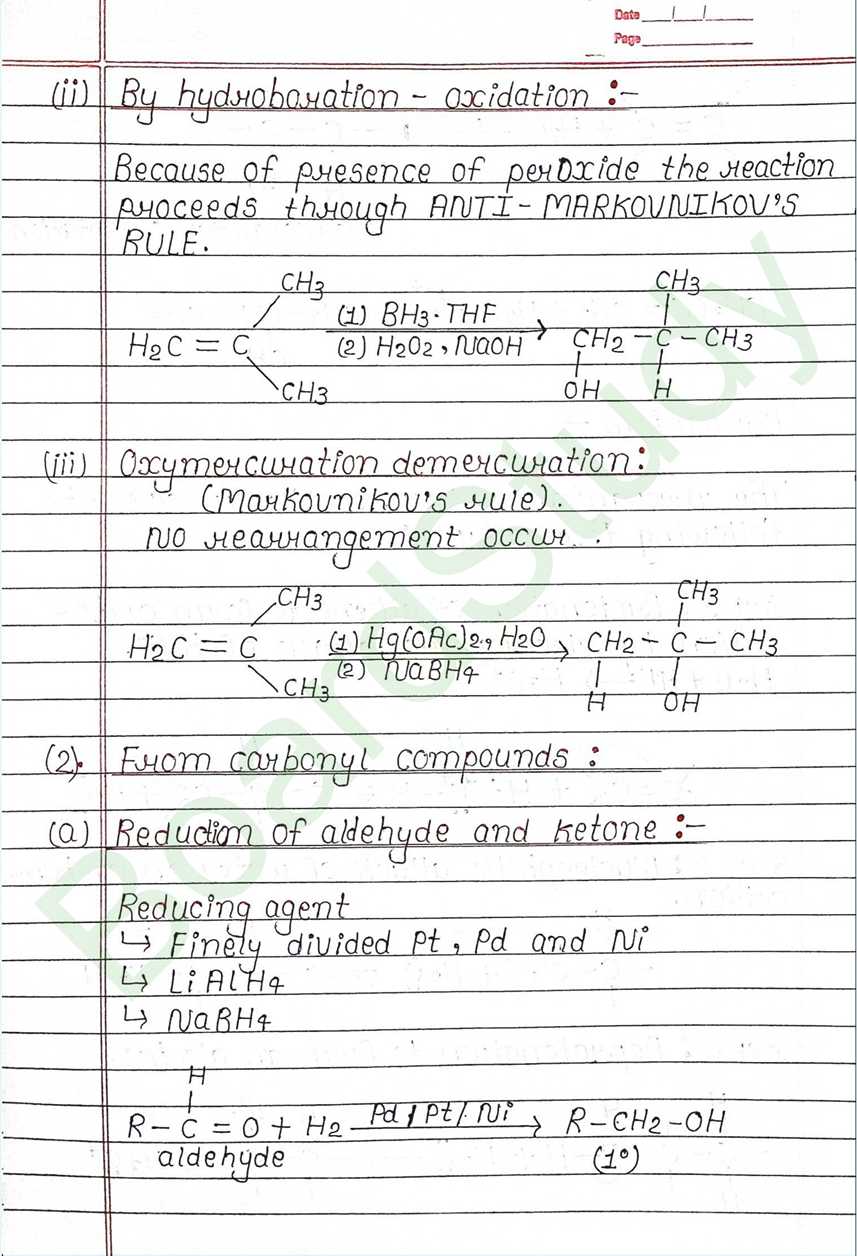 Date __/__/__
Page
(ii) By hydroboration - oxidation :-
Because of presence of peroxide the reaction
proceeds through ANTI - MARKOVNIKOV'S
RULE.
CH3 CH3
(1) BH3·THF
H2C = C (2) H2O2, NaOH CH2 - C - CH3
CH3 OH H
(iii) Oxymercuration demercuration :
(Markovnikov's rule).
NO rearrangement occur.
CH3 CH3
H2C = C (1) Hg(OAc)2, H2O CH2 - C - CH3
(2) NaBH4
CH3 H OH
(2). From carbonyl compounds :
(a) Reduction of aldehyde and ketone :-
Reducing agent
↳ Finely divided Pt, Pd and Ni
↳ LiAlH4
↳ NaBH4
H
R - C = O + H2 Pd / Pt / Ni → R - CH2 - OH
aldehyde (1°)
BoardStudy